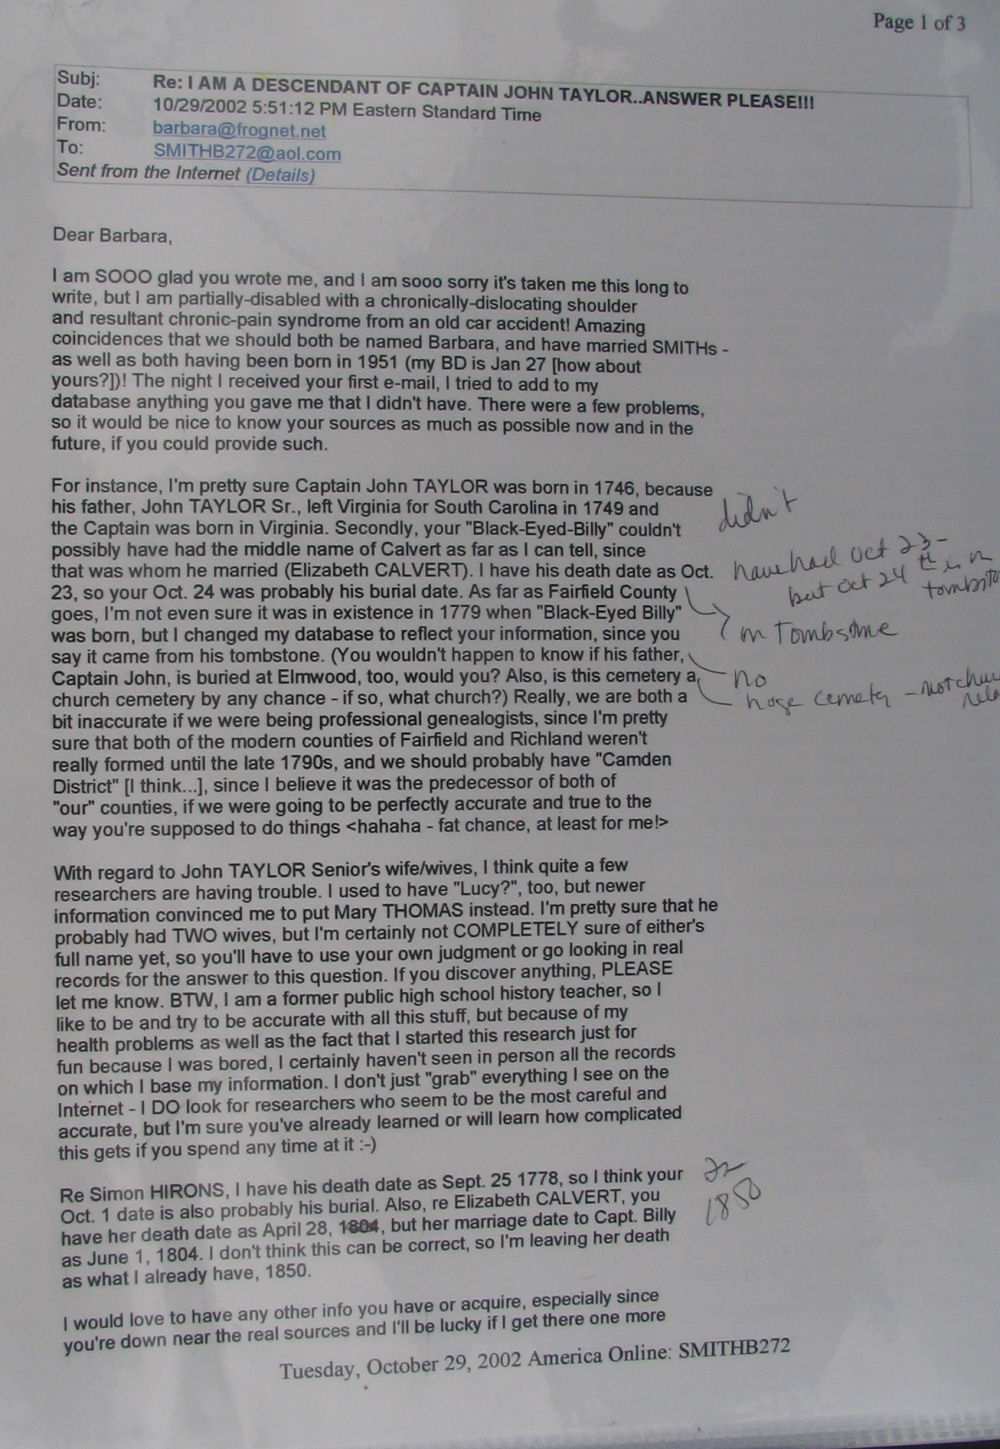 Page 1 of 3
Subj: Re: I AM A DESCENDANT OF CAPTAIN JOHN TAYLOR..ANSWER PLEASE!!!
Date: 10/29/2002 5:51:12 PM Eastern Standard Time
From: barbara@frognet.net
To: SMITHB272@aol.com
Sent from the Internet (Details)
Dear Barbara,
I am SOOO glad you wrote me, and I am sooo sorry it's taken me this long to
write, but I am partially-disabled with a chronically-dislocating shoulder
and resultant chronic-pain syndrome from an old car accident! Amazing
coincidences that we should both be named Barbara, and have married SMITHs -
as well as both having been born in 1951 (my BD is Jan 27 [how about
yours?])! The night I received your first e-mail, I tried to add to my
database anything you gave me that I didn't have. There were a few problems,
so it would be nice to know your sources as much as possible now and in the
future, if you could provide such.
For instance, I'm pretty sure Captain John TAYLOR was born in 1746, because
his father, John TAYLOR Sr., left Virginia for South Carolina in 1749 and
the Captain was born in Virginia. Secondly, your "Black-Eyed-Billy" couldn't
didn't
possibly have had the middle name of Calvert as far as I can tell, since
that was whom he married (Elizabeth CALVERT). I have his death date as Oct.
have had Oct 23-
23, so your Oct. 24 was probably his burial date. As far as Fairfield County
but Oct 24th is on
tombsto
goes, I'm not even sure it was in existence in 1779 when "Black-Eyed Billy"
was born, but I changed my database to reflect your information, since you
on Tombstone
say it came from his tombstone. (You wouldn't happen to know if his father,
Captain John, is buried at Elmwood, too, would you? Also, is this cemetery a
no
church cemetery by any chance - if so, what church?) Really, we are both a
huge cemetery - not chu
rela
bit inaccurate if we were being professional genealogists, since I'm pretty
sure that both of the modern counties of Fairfield and Richland weren't
really formed until the late 1790s, and we should probably have "Camden
District" [I think...], since I believe it was the predecessor of both of
"our" counties, if we were going to be perfectly accurate and true to the
way you're supposed to do things <hahaha - fat chance, at least for me!>
With regard to John TAYLOR Senior's wife/wives, I think quite a few
researchers are having trouble. I used to have "Lucy?", too, but newer
information convinced me to put Mary THOMAS instead. I'm pretty sure that he
probably had TWO wives, but I'm certainly not COMPLETELY sure of either's
full name yet, so you'll have to use your own judgment or go looking in real
records for the answer to this question. If you discover anything, PLEASE
let me know. BTW, I am a former public high school history teacher, so I
like to be and try to be accurate with all this stuff, but because of my
health problems as well as the fact that I started this research just for
fun because I was bored, I certainly haven't seen in person all the records
on which I base my information. I don't just "grab" everything I see on the
Internet - I DO look for researchers who seem to be the most careful and
accurate, but I'm sure you've already learned or will learn how complicated
this gets if you spend any time at it :-)
Re Simon HIRONS, I have his death date as Sept. 25 1778, so I think your
Oct. 1 date is also probably his burial. Also, re Elizabeth CALVERT, you
have her death date as April 28, 1804, but her marriage date to Capt. Billy
1850
as June 1, 1804. I don't think this can be correct, so I'm leaving her death
as what I already have, 1850.
I would love to have any other info you have or acquire, especially since
you're down near the real sources and I'll be lucky if I get there one more
Tuesday, October 29, 2002 America Online: SMITHB272